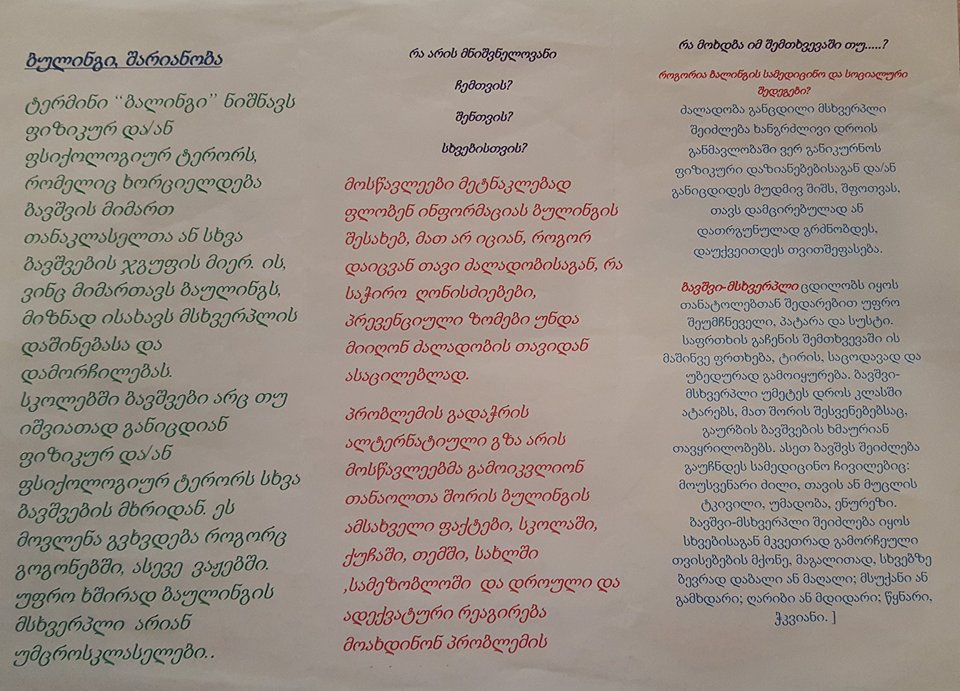 ბულინგი, შარიანობა
ტერმინი “ბალინგი” ნიშნავს
ფიზიკურ და/ან
ფსიქოლოგიურ ტერორს,
რომელიც ხორციელდება
ბავშვის მიმართ
თანაკლასელთა ან სხვა
ბავშვების ჯგუფის მიერ. ის,
ვინც მიმართავს ბაულინგს,
მიზნად ისახავს მსხვერპლის
დაშინებასა და
დამორჩილებას.
სკოლებში ბავშვები არც თუ
იშვიათად განიცდიან
ფიზიკურ და/ან
ფსიქოლოგიურ ტერორს სხვა
ბავშვების მხრიდან. ეს
მოვლენა გვხვდება როგორც
გოგონებში, ასევე ვაჟებში.
უფრო ხშირად ბაულინგის
მსხვერპლი არიან
უმცროსკლასელები..
რა არის მნიშვნელოვანი
ჩემთვის?
შენთვის?
სხვებისთვის?
მოსწავლეები მეტნაკლებად
ფლობენ ინფორმაციას ბულინგის
შესახებ, მათ არ იციან, როგორ
დაიცვან თავი ძალადობისაგან, რა
საჭირო ღონისძიებები,
პრევენციული ზომები უნდა
მიიღონ ძალადობის თავიდან
ასაცილებლად.
პრობლემის გადაჭრის
ალტერნატიული გზა არის
მოსწავლეებმა გამოიკვლიონ
თანაოლთა შორის ბულინგის
ამსახველი ფაქტები, სკოლაში,
ქუჩაში, თემში, სახლში
,სამეზობლოში და დროული და
ადექვატური რეაგირება
მოახდინონ პრობლემის
რა მოხდბა იმ შემთხვევაში თუ.....?
როგორია ბალინგის სამედიცინო და სოციალური
შედეგები?
ძალადობა განცდილი მსხვერპლი
შეიძლება ხანგრძლივი დროის
განმავლობაში ვერ განიკურნოს
ფიზიკური დაზიანებებისაგან და/ან
განიცდიდეს მუდმივ შიშს, შფოთვას,
თავს დამცირებულად ან
დათრგუნულად გრძნობდეს,
დაუქვეითდეს თვითშეფასება.
ბავშვი-მსხვერპლი ცდილობს იყოს
თანატოლებთან შედარებით უფრო
შეუმჩნეველი, პატარა და სუსტი.
საფრთხის გაჩენის შემთხვევაში ის
მაშინვე ფრთხება, ტირის, საცოდავად და
უბედურად გამოიყურება. ბავშვი-
მსხვერპლი უმეტეს დროს კლასში
ატარებს, მათ შორის შესვენებებსაც,
გაურბის ბავშვების ხმაურიან
თავყრილობებს. ასეთ ბავშვს შეიძლება
გაუჩნდეს სამედიცინო ჩივილებიც:
მოუსვენარი ძილი, თავის ან მუცლის
ტკივილი, უმადობა, ენურეზი.
ბავშვი-მსხვერპლი შეიძლება იყოს
სხვებისაგან მკვეთრად გამორჩეული
თვისებების მქონე, მაგალითად, სხვებზე
ბევრად დაბალი ან მაღალი; მსუქანი ან
გამხდარი; ღარიბი ან მდიდარი; წყნარი,
ჭკვიანი. ]